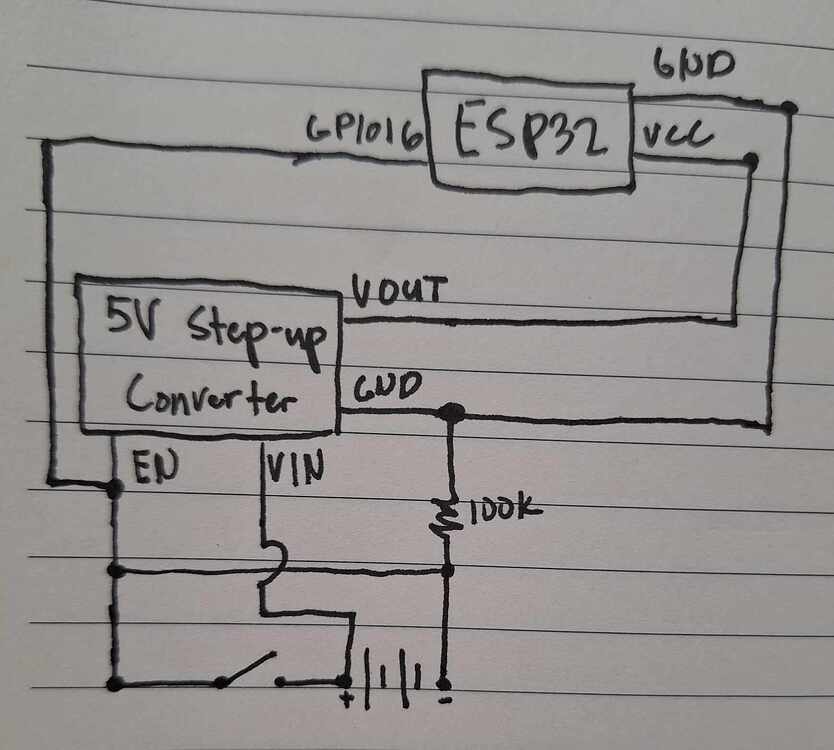 GND
GPIO16
ESP32
VCC
VOUT
5V Step-up
Converter
GND
EN
VIN
100K
+
-